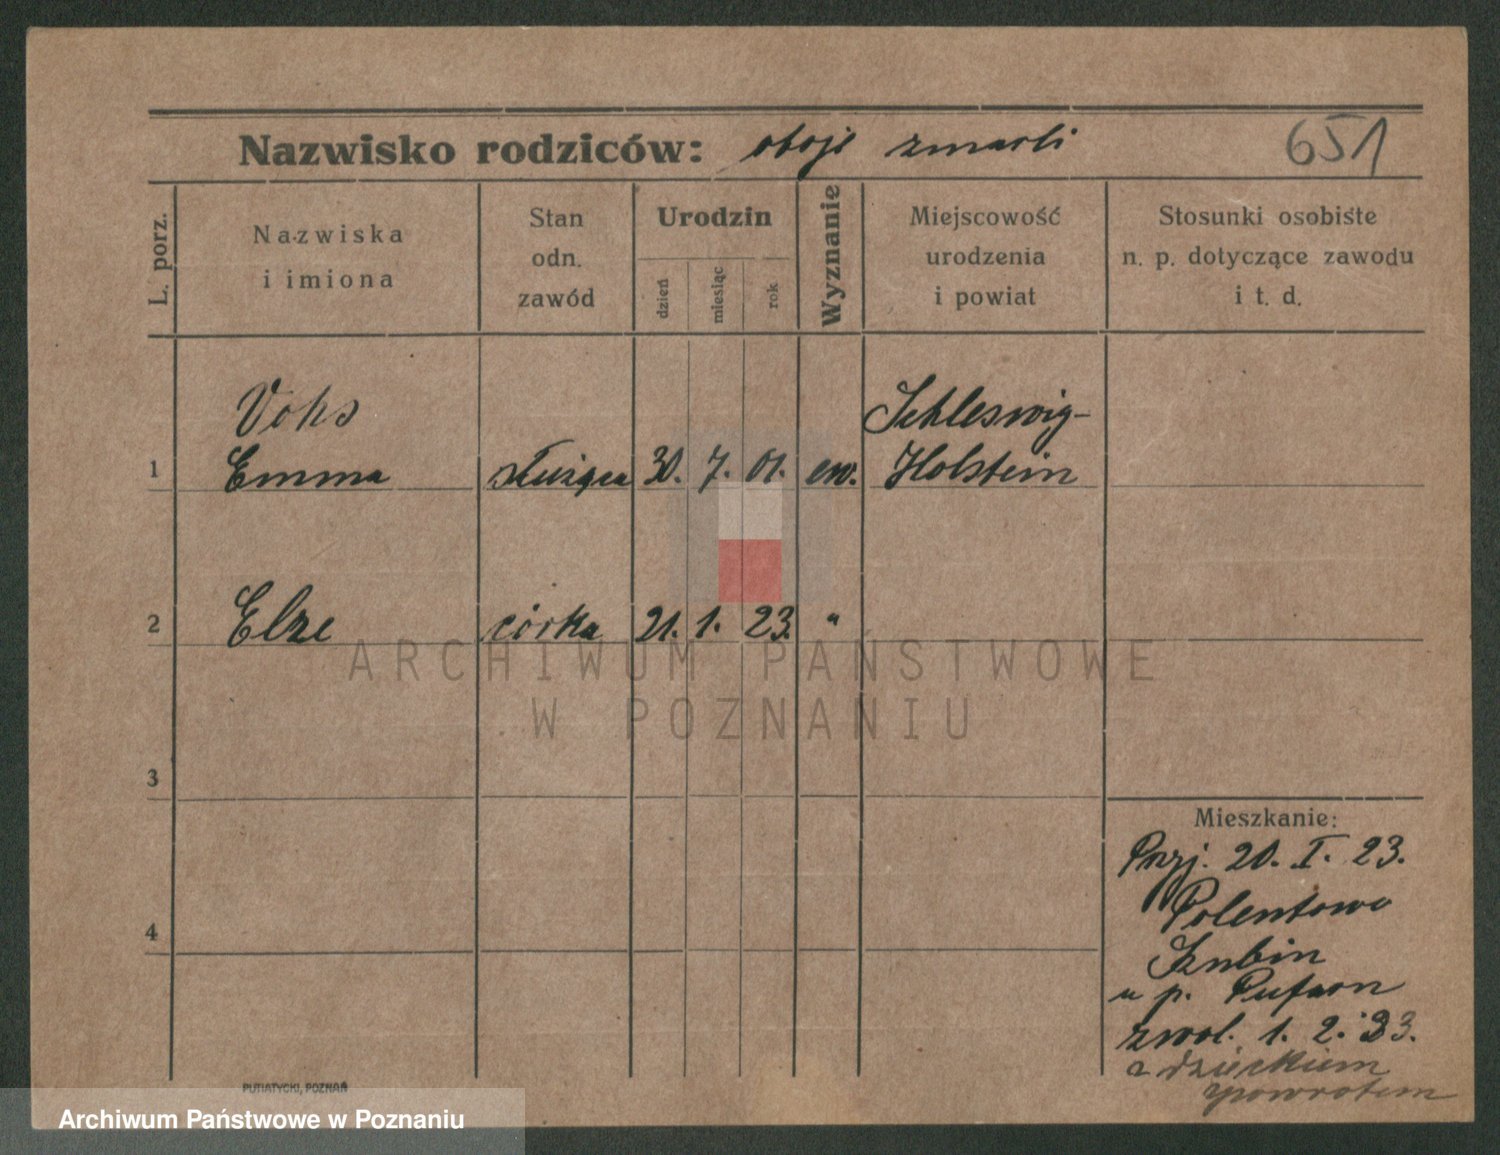 Nazwisko rodziców: oboje zmarli 651
L. porz.
Nazwiska
i imiona
Stan
odn.
zawód
Urodzin
dzień
miesiąc
rok
Wyznanie
Miejscowość
urodzenia
i powiat
Stosunki osobiste
n. p. dotyczące zawodu
i t. d.
Voks Schleswig-
1 Emma służąca 30. 7. 01. ew. Holstein
2 Elze córka 21. 1. 23. "
ARCHIWUM PAŃSTWOWE
W POZNANIU
3
Mieszkanie:
Przj. 20. I. 23.
Polentowo
4
u p.
zwol. 1. 2. 23.
z dzieckiem
powrotem
PUTIATYCKI, POZNAŃ
Archiwum Państwowe w Poznaniu